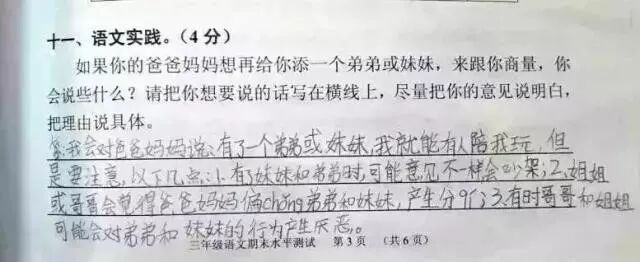 十一、语文实践。(4分)
如果你的爸爸妈妈想再给你添一个弟弟或妹妹，来跟你商量，你
会说些什么？请把你想要说的话写在横线上，尽量把你的意见说明白，
把理由说具体。
我会对爸爸妈妈说：有了一个弟弟或妹妹，我就能有人陪我玩，但
是要注意，以下几点：1.有妹妹和弟弟时，可能意见不一样会吵架；2.姐姐
或哥哥会觉得爸爸妈妈偏chǒng弟弟和妹妹，产生分歧；3.有时哥哥和姐姐
可能会对弟弟和妹妹的行为产生厌恶。
三年级语文期末水平测试 第3页 (共6页)